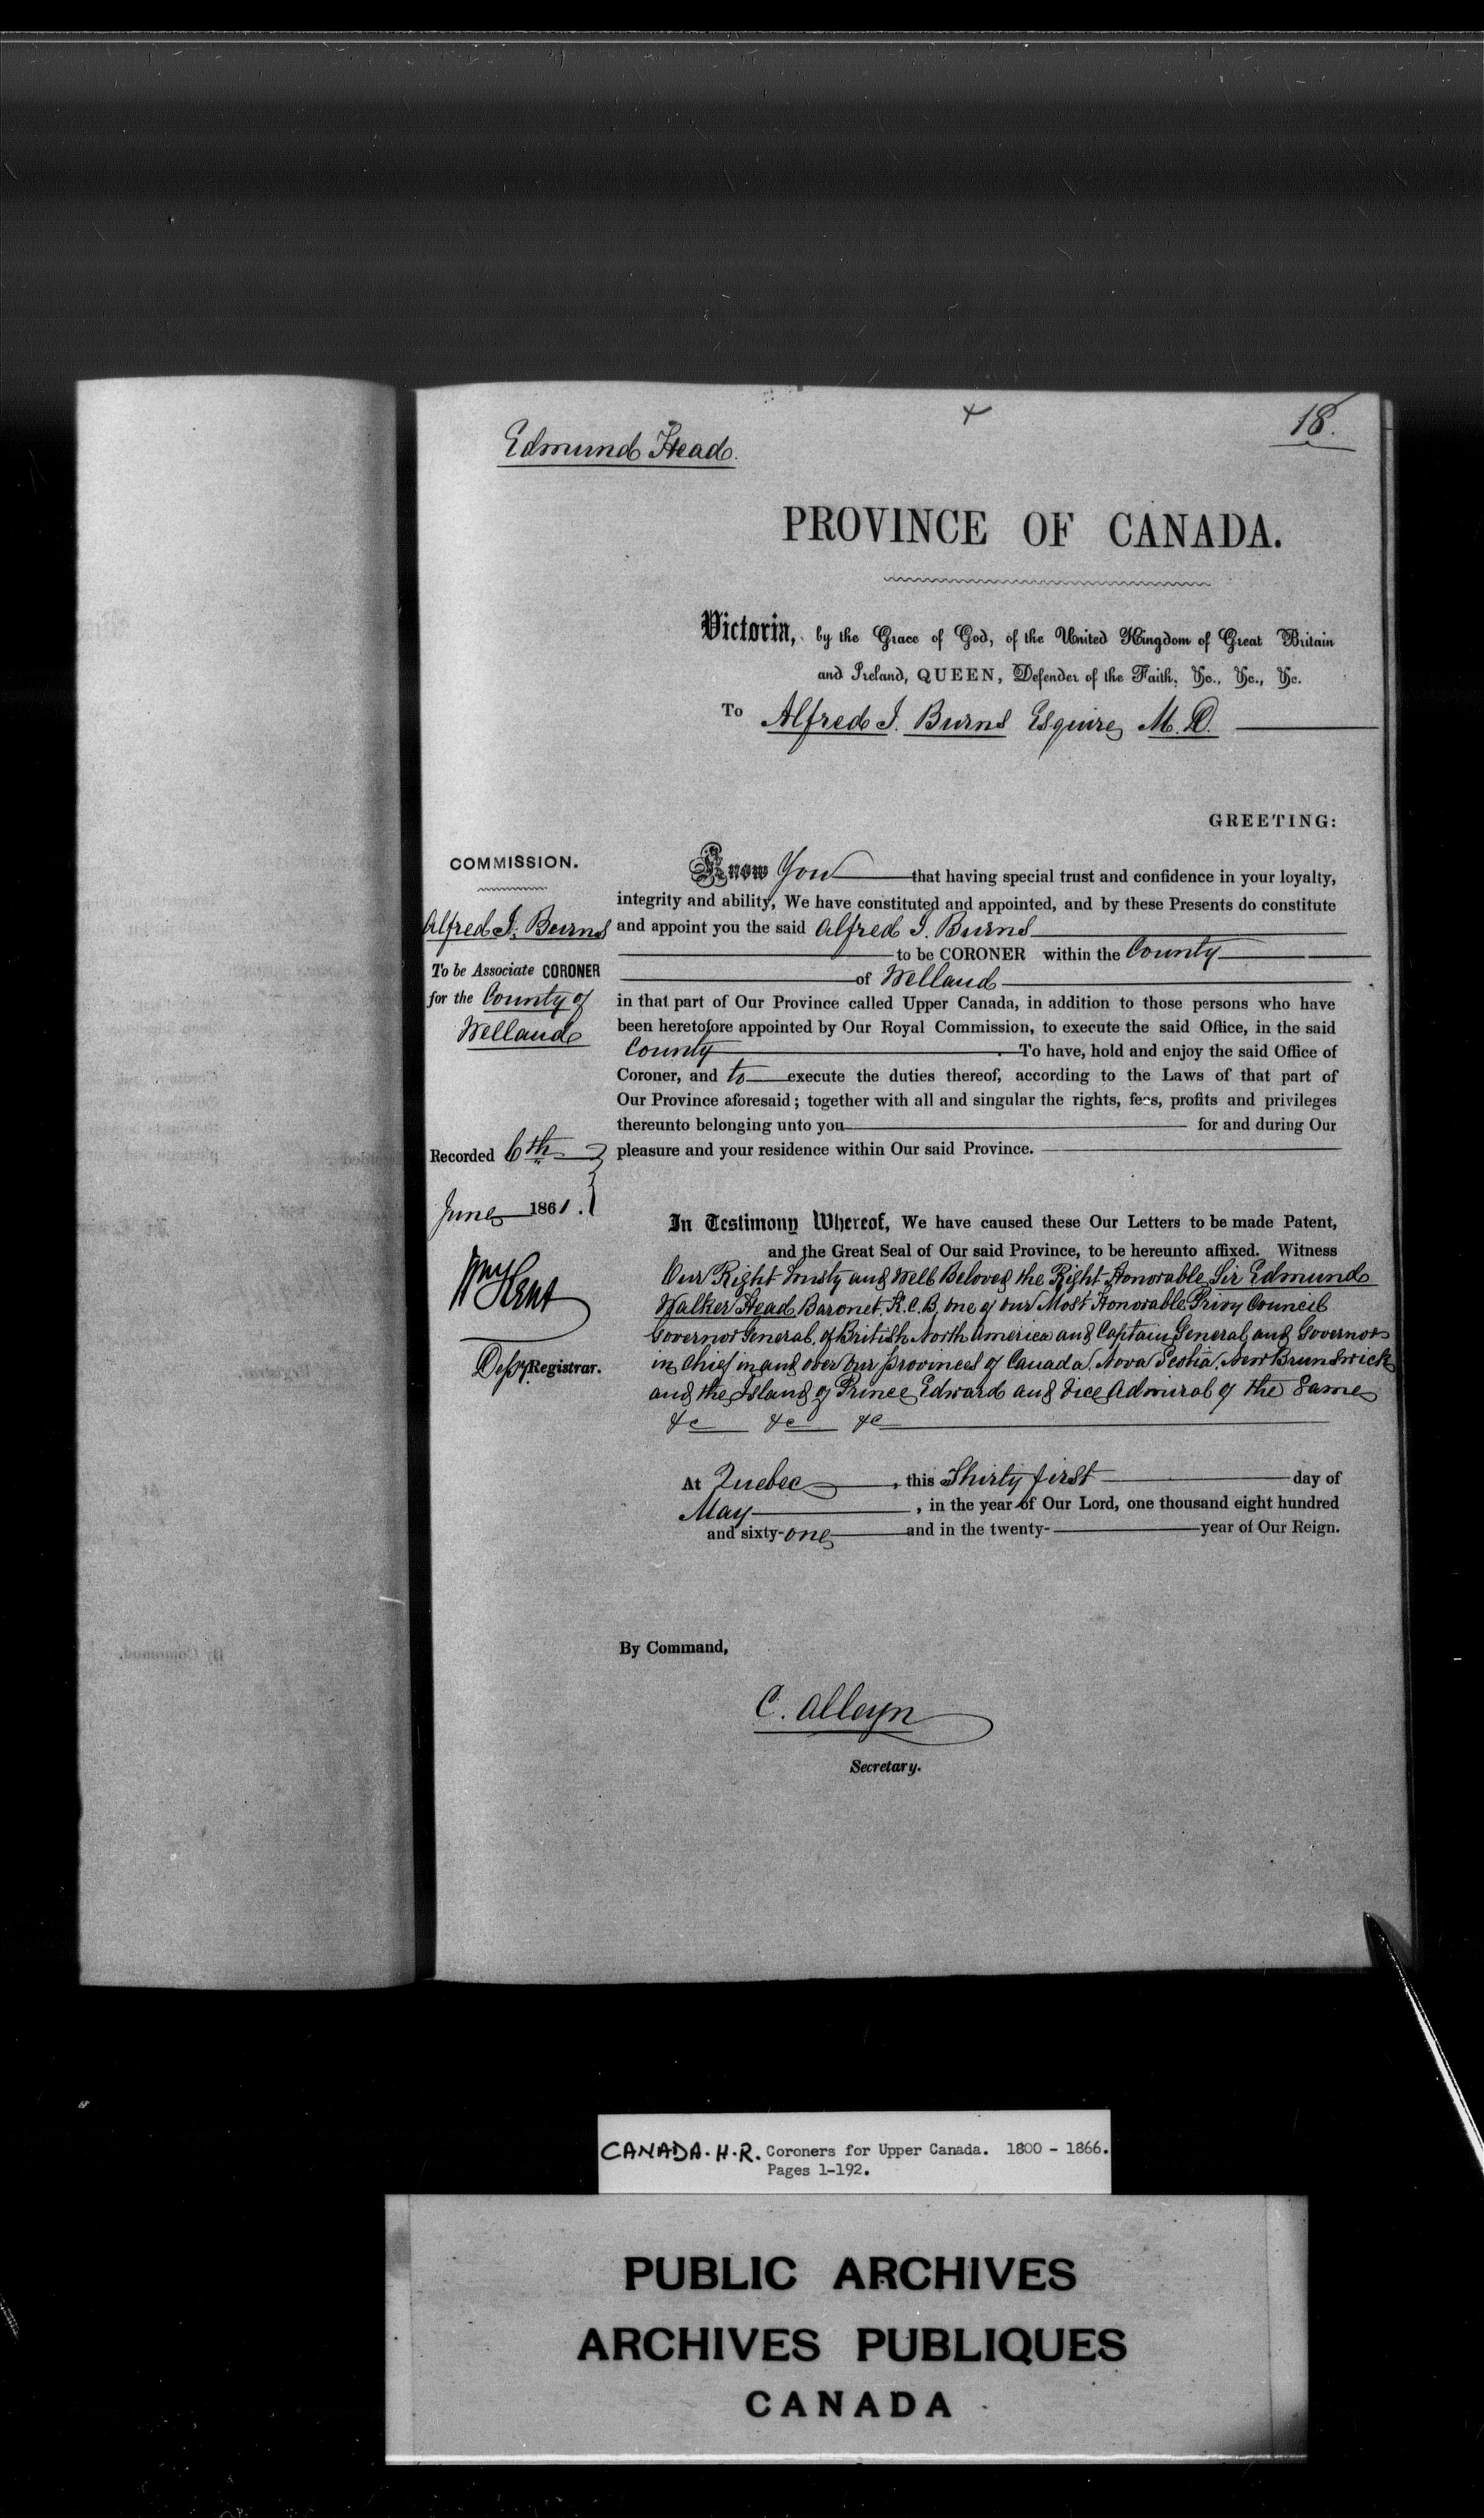 Edmund Head.
18.
PROVINCE OF CANADA.
Victoria, by the Grace of God, of the United Kingdom of Great Britain
and Ireland, QUEEN, Defender of the Faith, &c., &c., &c.
To Alfred I. Burns Esquire, M.D.
GREETING:
COMMISSION.
Alfred I. Burns
To be Associate CORONER
for the County of
Welland
Recorded 6th
June 1861.
Wm Kent
Depy Registrar.
Know You that having special trust and confidence in your loyalty,
integrity and ability, We have constituted and appointed, and by these Presents do constitute
and appoint you the said Alfred I. Burns
to be CORONER within the County
of Welland
in that part of Our Province called Upper Canada, in addition to those persons who have
been heretofore appointed by Our Royal Commission, to execute the said Office, in the said
County To have, hold and enjoy the said Office of
Coroner, and to execute the duties thereof, according to the Laws of that part of
Our Province aforesaid; together with all and singular the rights, fees, profits and privileges
thereunto belonging unto you for and during Our
pleasure and your residence within Our said Province.
In Testimony Whereof, We have caused these Our Letters to be made Patent,
and the Great Seal of Our said Province, to be hereunto affixed. Witness
Our Right Trusty and Well Beloved the Right Honorable Sir Edmund
Walker Head Baronet, K.C.B. one of our Most Honorable Privy Council
Governor General of British North America and Captain General and Governor
in Chief in and over Our provinces of Canada, Nova Scotia, New Brunswick
and the Island of Prince Edward and Vice Admiral of the Same
&c &c &c
At Quebec, this Thirty first day of
May, in the year of Our Lord, one thousand eight hundred
and sixty-one and in the twenty- year of Our Reign.
By Command,
C. Alleyn
Secretary.
CANADA. H.R. Coroners for Upper Canada. 1800 - 1866.
Pages 1-192.
PUBLIC ARCHIVES
ARCHIVES PUBLIQUES
CANADA